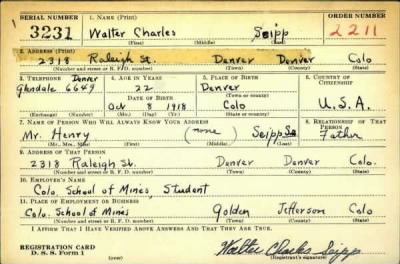 SERIAL NUMBER 1. NAME (Print) ORDER NUMBER
3231 Walter Charles Seipp 2211
(First) (Middle) (Last)
2. ADDRESS (Print)
2318 Raleigh St. Denver Denver Colo
(Number and street or R. F. D. number) (Town) (County) (State)
3. TELEPHONE 4. AGE IN YEARS 5. PLACE OF BIRTH 6. COUNTRY OF CITIZENSHIP
Denver 22 Denver
Glendale 6649 DATE OF BIRTH (Town or county)
Oct 8 1918 Colo U.S.A.
(Exchange) (Number) (Mo.) (Day) (Yr.) (State or country)
7. NAME OF PERSON WHO WILL ALWAYS KNOW YOUR ADDRESS 8. RELATIONSHIP OF THAT PERSON
Mr. Henry (none) Seipp Sr. Father
(Mr., Mrs., Miss) (First) (Middle) (Last)
9. ADDRESS OF THAT PERSON
2318 Raleigh St. Denver Denver Colo.
(Number and street or R. F. D. number) (Town) (County) (State)
10. EMPLOYER'S NAME
Colo. School of Mines, Student
11. PLACE OF EMPLOYMENT OR BUSINESS
Colo. School of Mines Golden Jefferson Colo
(Number and street or R. F. D. number) (Town) (County) (State)
I AFFIRM THAT I HAVE VERIFIED ABOVE ANSWERS AND THAT THEY ARE TRUE.
REGISTRATION CARD
D. S. S. Form 1 (over) Walter Charles Seipp
(Registrant's signature)